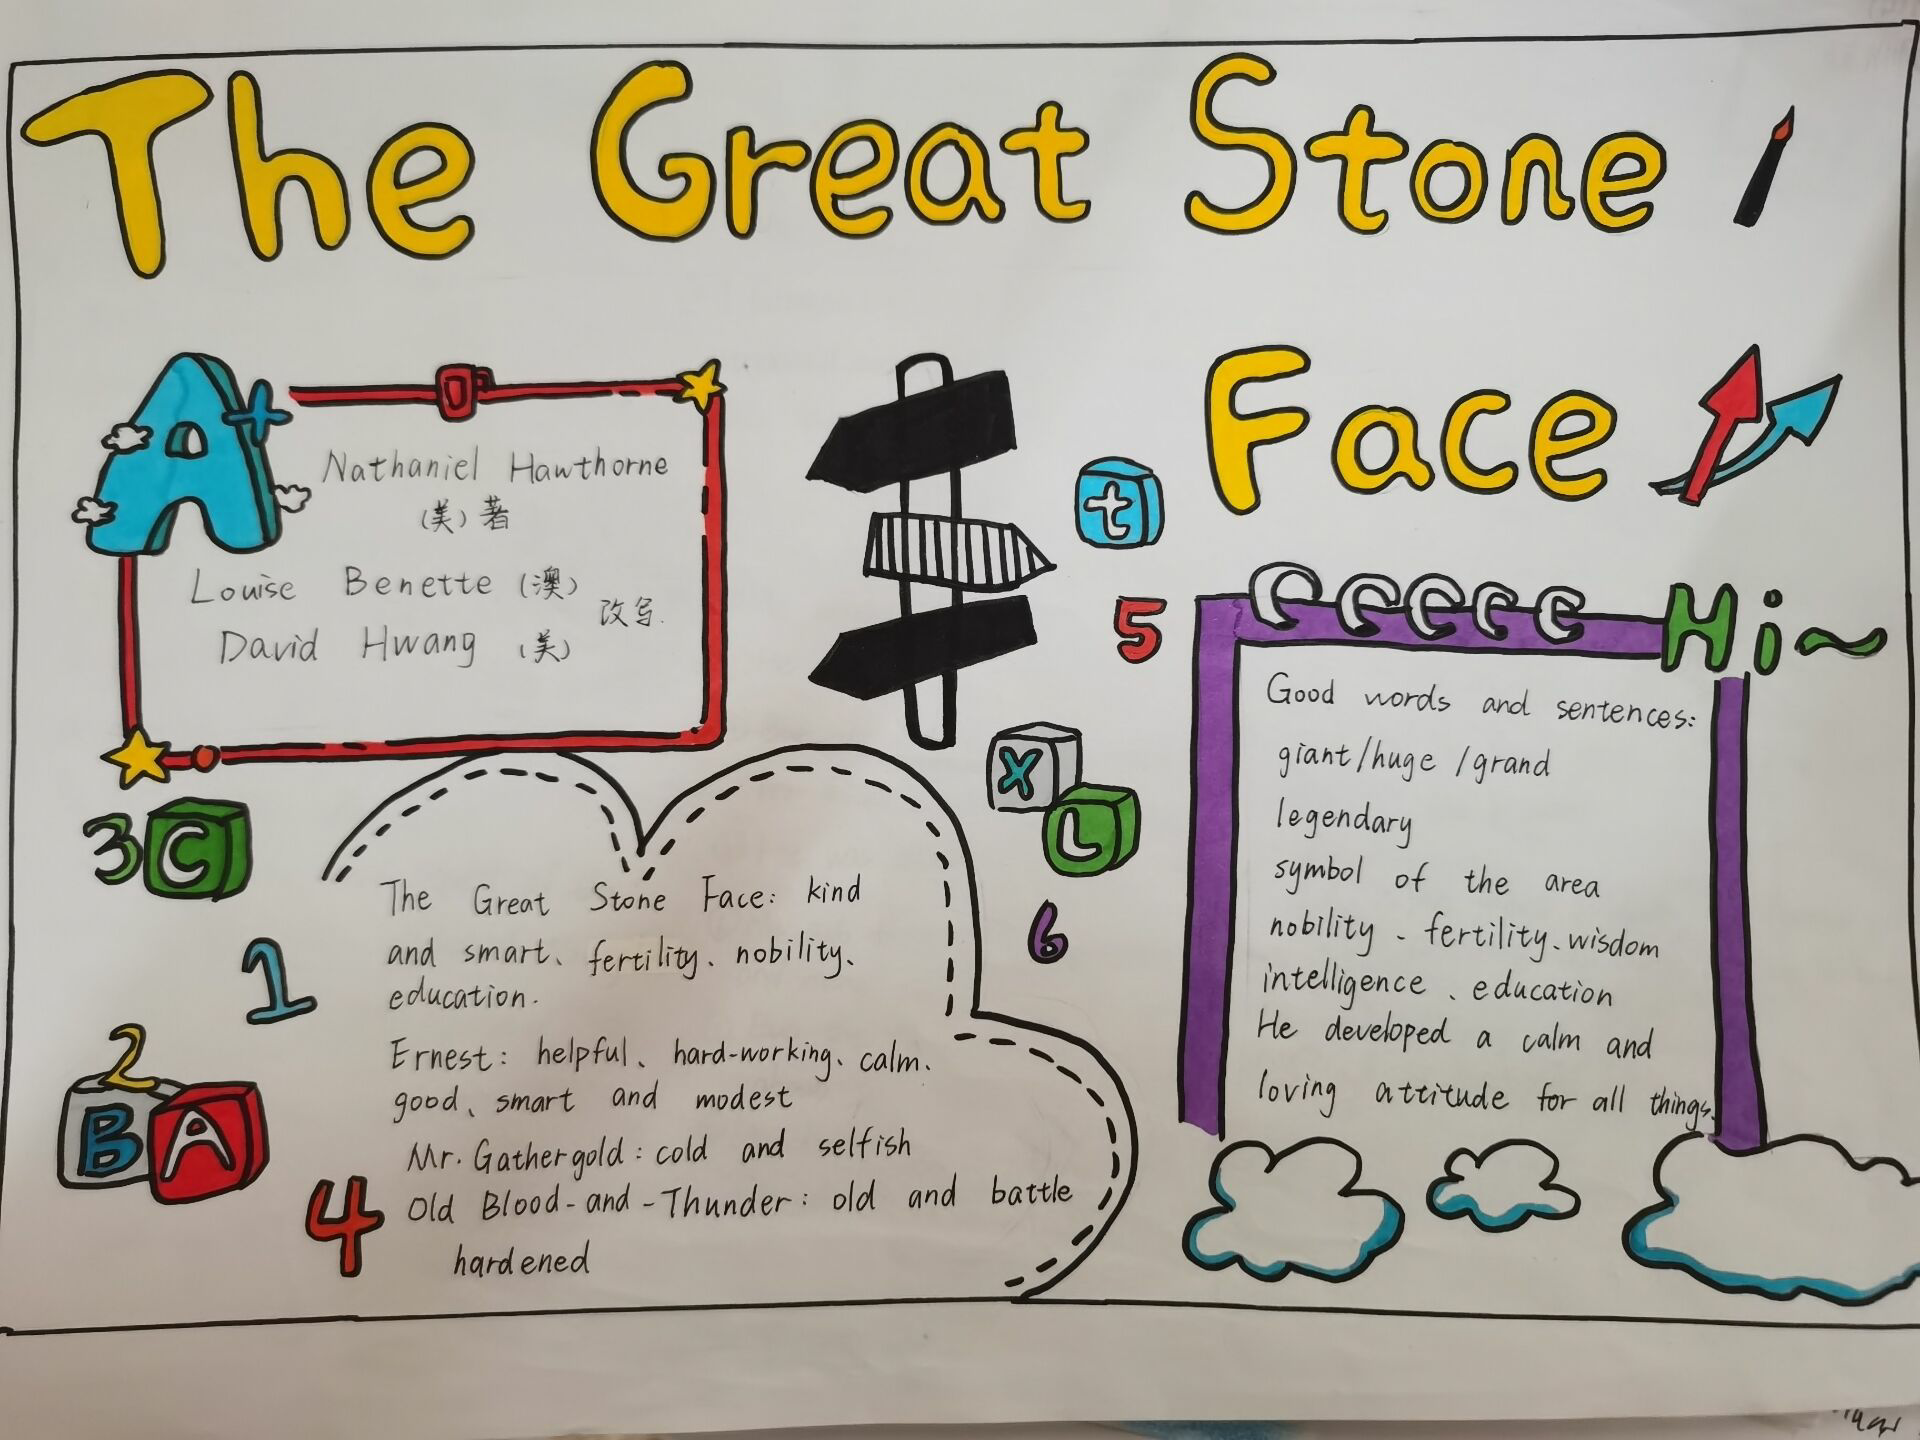 The Great Stone
Face
A+
Nathaniel Hawthorne
(美) 著
Louise Benette (澳)
改写.
David Hwang (美)
t
5
Hi~
Good words and sentences:
giant/huge/grand
legendary
symbol of the area
nobility、fertility、wisdom
intelligence、education
He developed a calm and
loving attitude for all things.
X
L
6
3 C
1
2
B A
4
The Great Stone Face: kind
and smart、fertility、nobility、
education.
Ernest: helpful、hard-working、calm、
good、smart and modest
Mr. Gathergold: cold and selfish
Old Blood-and-Thunder: old and battle
hardened